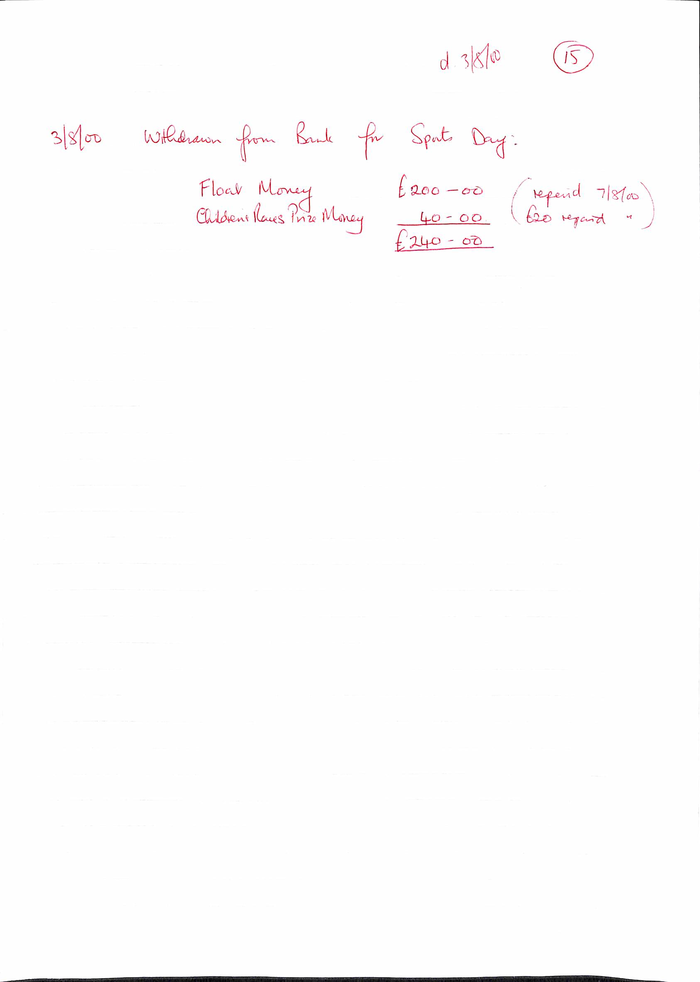 d 3/8/00 15
3/8/00 Withdrawn from Bank for Sports Day:
Float Money £200-00 (repaid 7/8/00)
Childrens Races Prize Money 40-00 (£20 repaid ")
£240-00